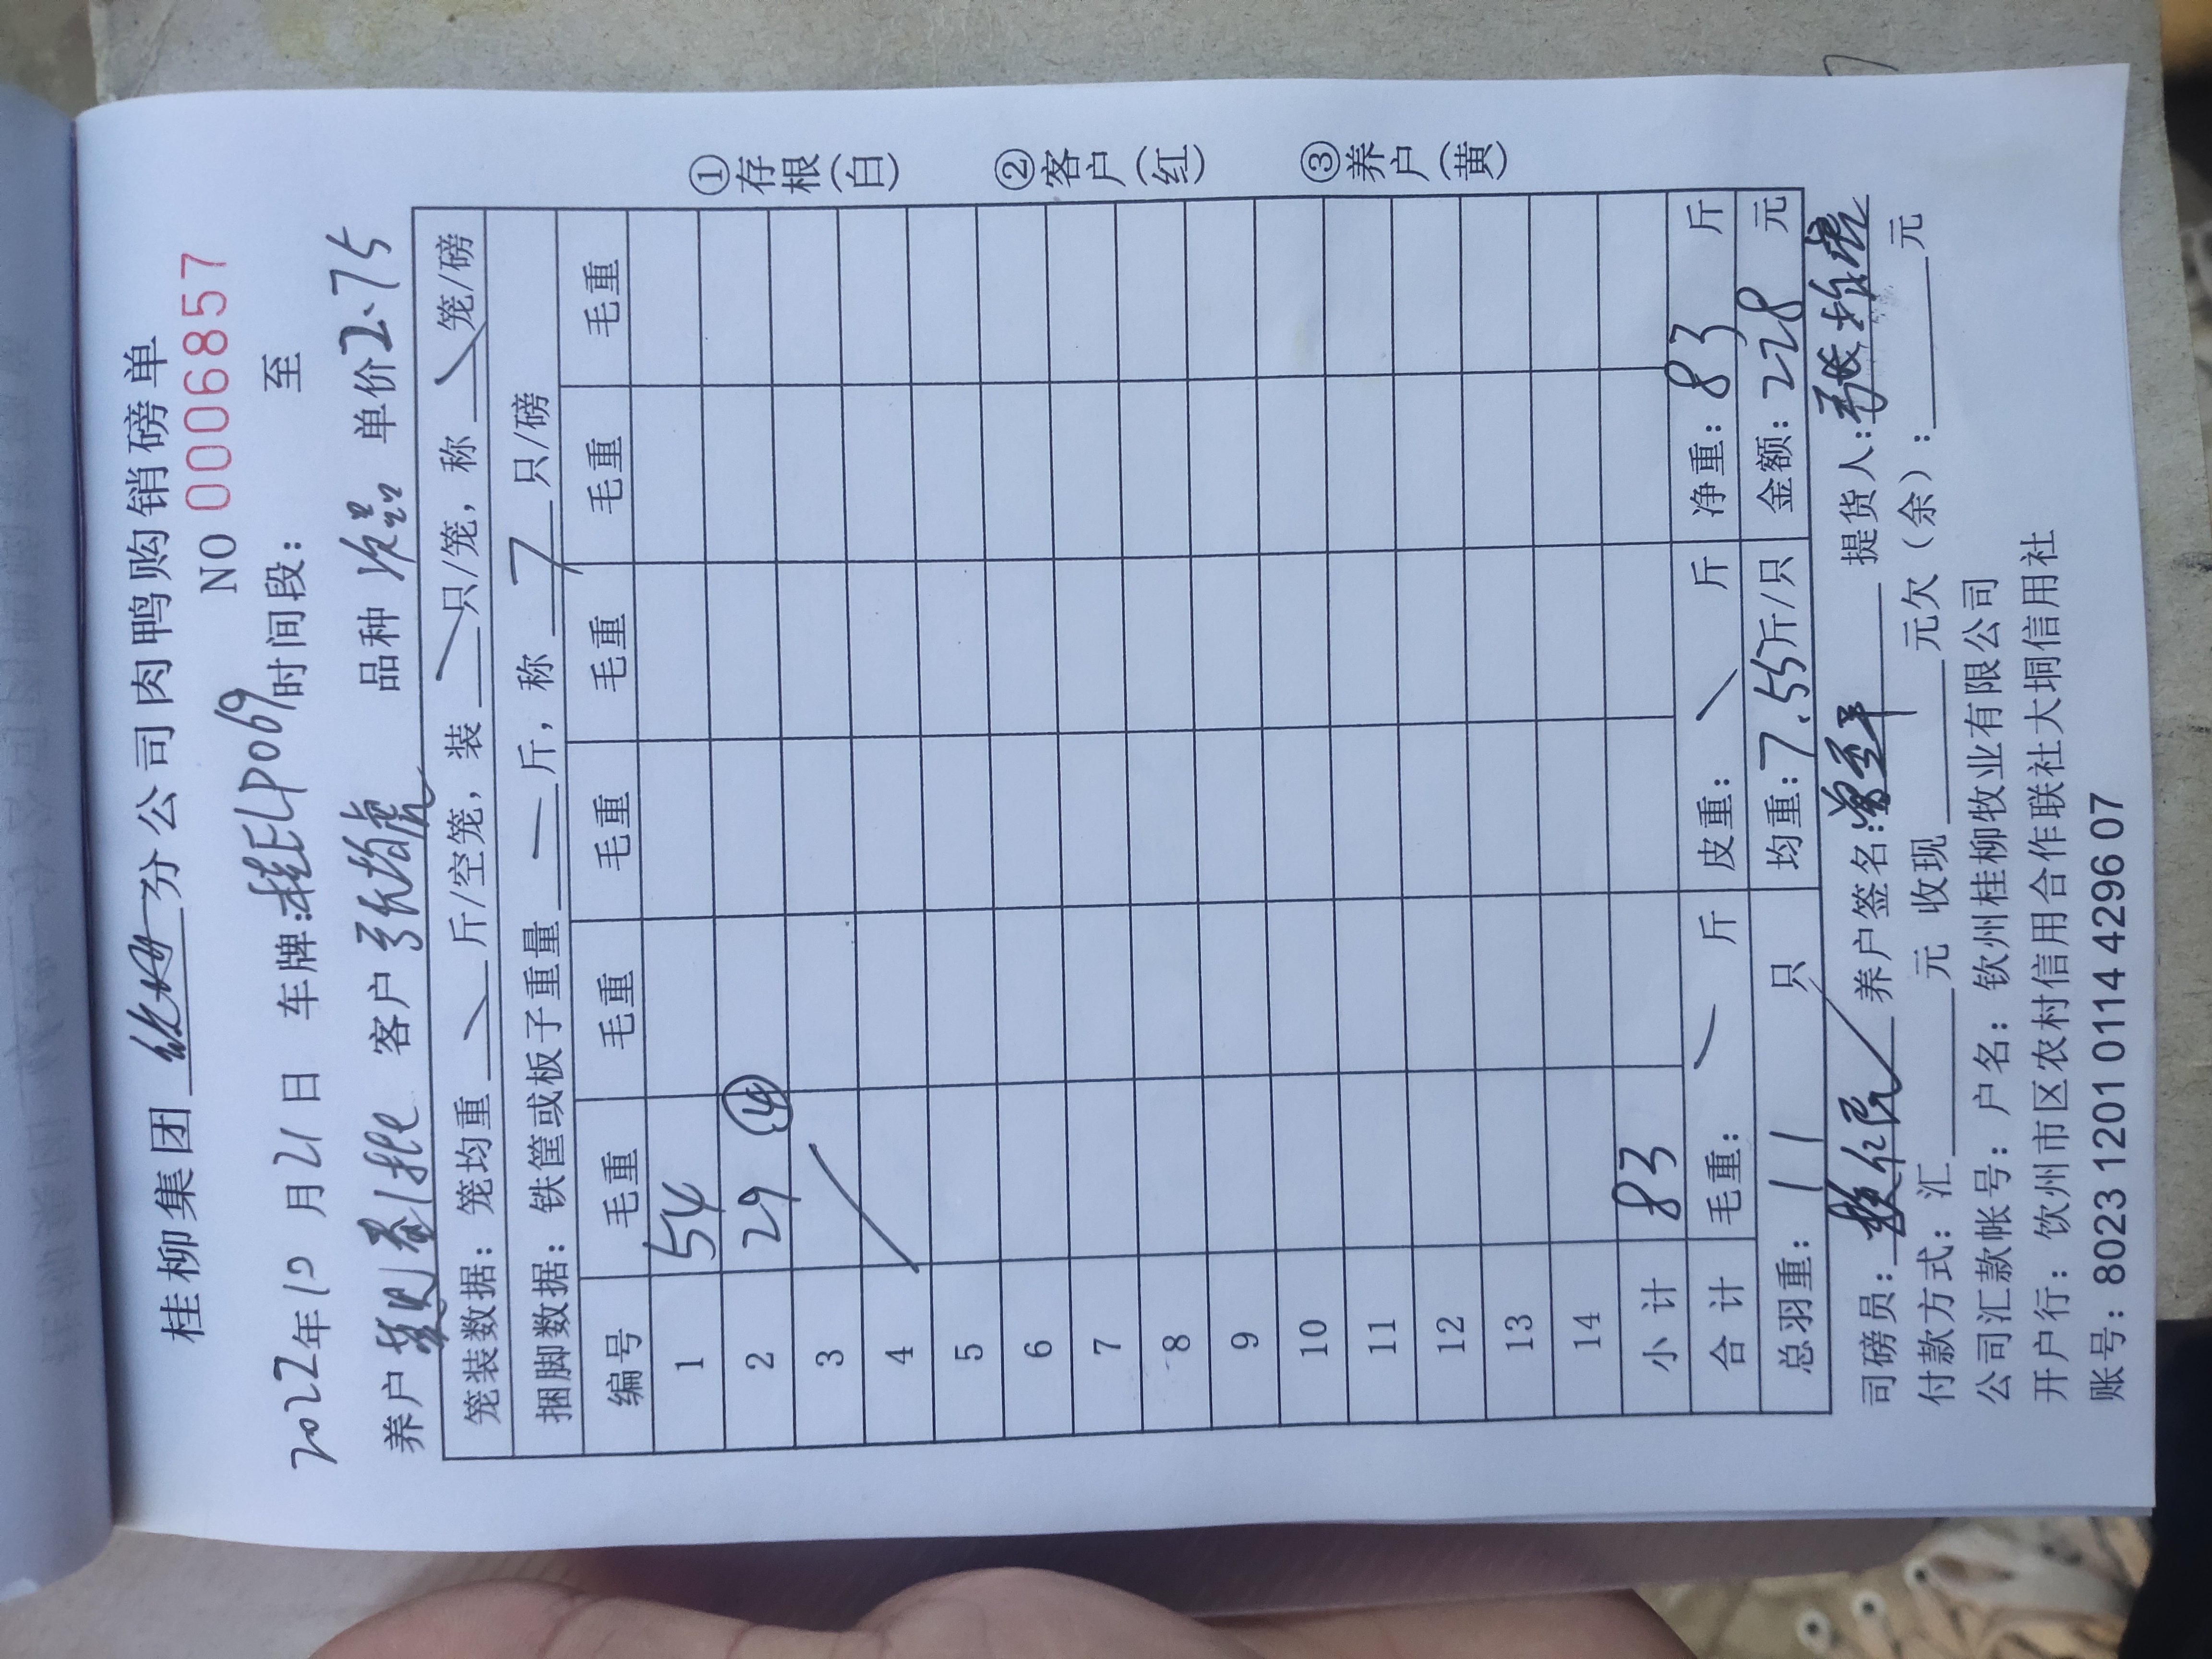 桂柳集团 钦州 分公司肉鸭购销磅单
NO 0006857
2022年10月21日 车牌:桂ELP069 时间段: 至
养户 客户 张培虎 品种 次品 单价2.75
笼装数据: 笼均重 斤/空笼, 装 只/笼, 称 笼/磅
捆脚数据: 铁筐或板子重量 斤, 称 7 只/磅
编号 毛重 毛重 毛重 毛重 毛重 毛重
1 54
2 29 ④
3
4
5
6
7
8
9
10
11
12
13
14
小计 83
合计 毛重: 斤 皮重: 斤 净重: 83 斤
总羽重: 11 只 均重: 7.55斤/只 金额: 228 元
司磅员: 养户签名: 提货人:
付款方式: 汇 元 收现 元欠(余): 元
公司汇款帐号: 户名: 钦州桂柳牧业有限公司
开户行: 饮州市区农村信用合作联社大垌信用社
账号: 8023 1201 0114 4296 07
①存根(白)
②客户(红)
③养户(黄)